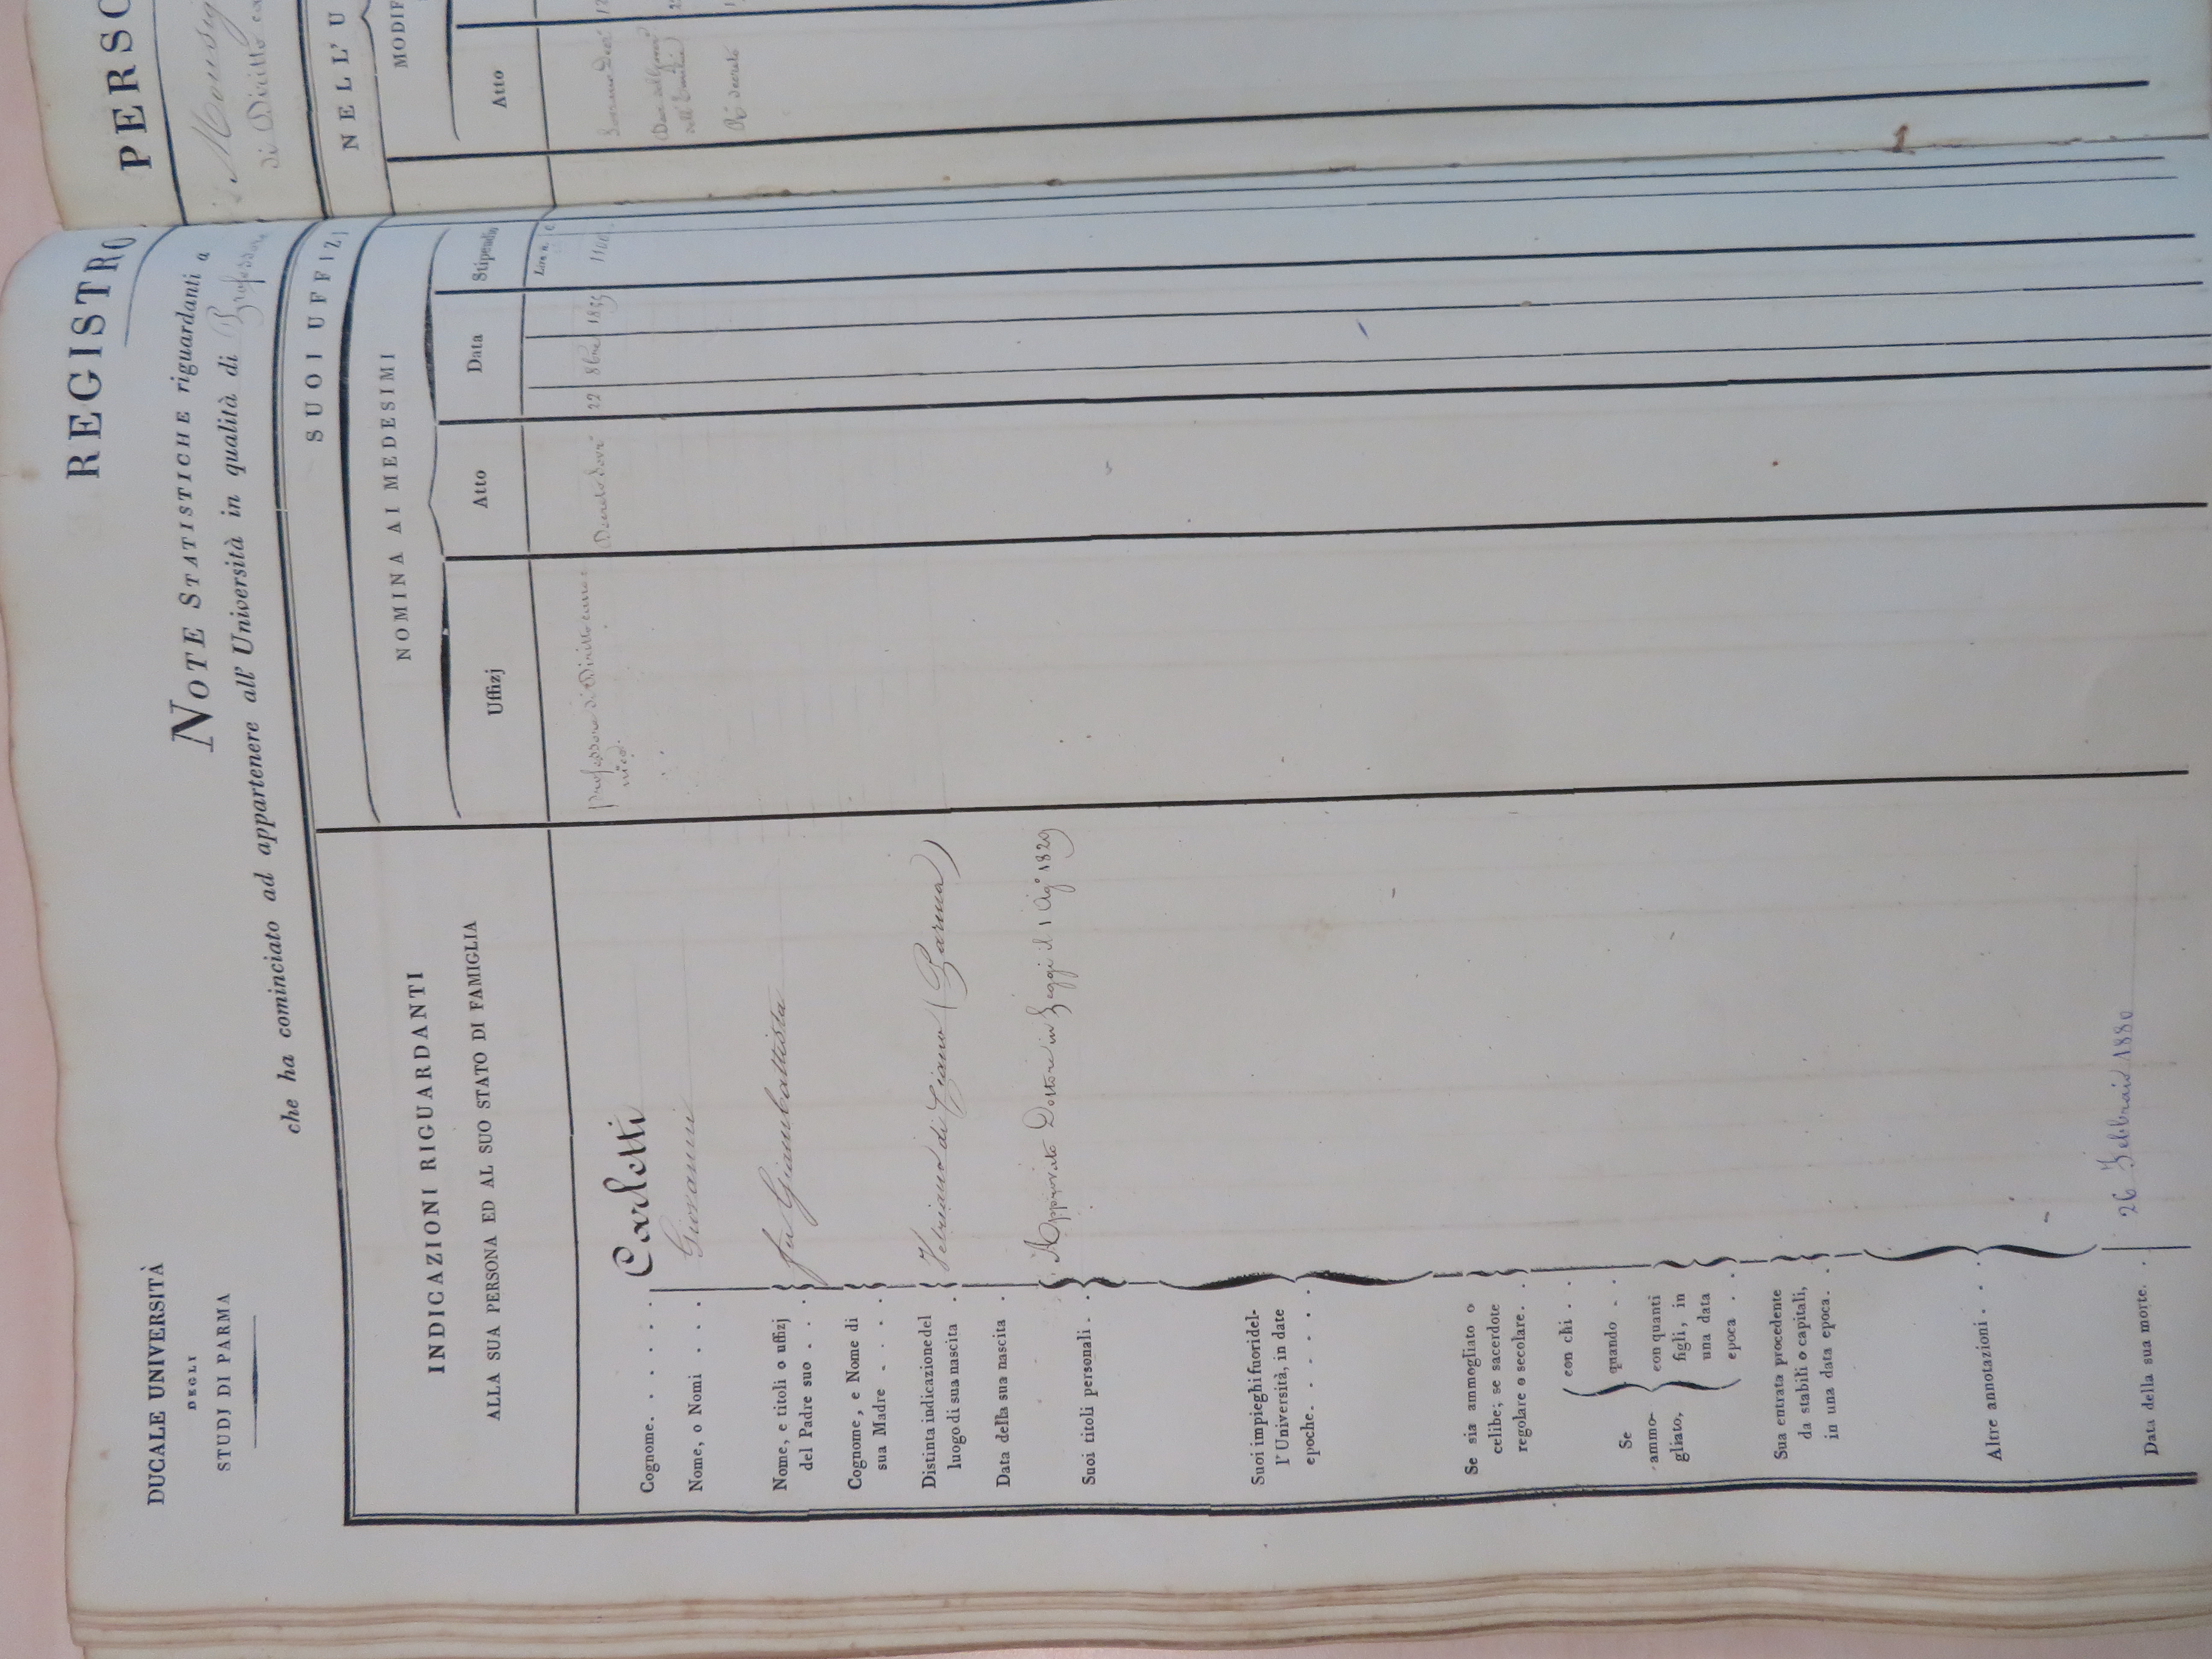 DUCALE UNIVERSITÀ
DEGLI
STUDJ DI PARMA
REGISTRO
PERSO
NOTE STATISTICHE riguardanti a
Monsig
che ha cominciato ad appartenere all' Università in qualità di Professore
di Diritto ca
INDICAZIONI RIGUARDANTI
ALLA SUA PERSONA ED AL SUO STATO DI FAMIGLIA
SUOI UFFIZJ
NELL' U
NOMINA AI MEDESIMI
MODIF
Uffizj
Atto
Data
Stipendio
Atto
Lire n. c
professore di Diritto cano=
nico.
Decreto Sovr.
22 8bre 1835
1100
Cognome. . . . . . Carletti
Nome, o Nomi . . . Giovanni
Nome, e titoli o uffizj
del Padre suo . . . fu Giambattista
Cognome, e Nome di
sua Madre . . . .
Distinta indicazione del
luogo di sua nascita . Vibriano di Ziano (Parma)
Data della sua nascita .
Suoi titoli personali . . Approvato Dottore in Leggi il 1 Ago 1829
Suoi impieghi fuori del-
l' Università, in date
epoche. . . . . .
Se sia ammogliato o
celibe; se sacerdote
regolare o secolare. .
Se
ammo-
gliato,
con chi . .
quando . .
con quanti
figli, in
una data
epoca . .
Sua entrata procedente
da stabili o capitali,
in una data epoca. .
Altre annotazioni . . .
Data della sua morte. . 26 Febbraio 1880
Re decreto